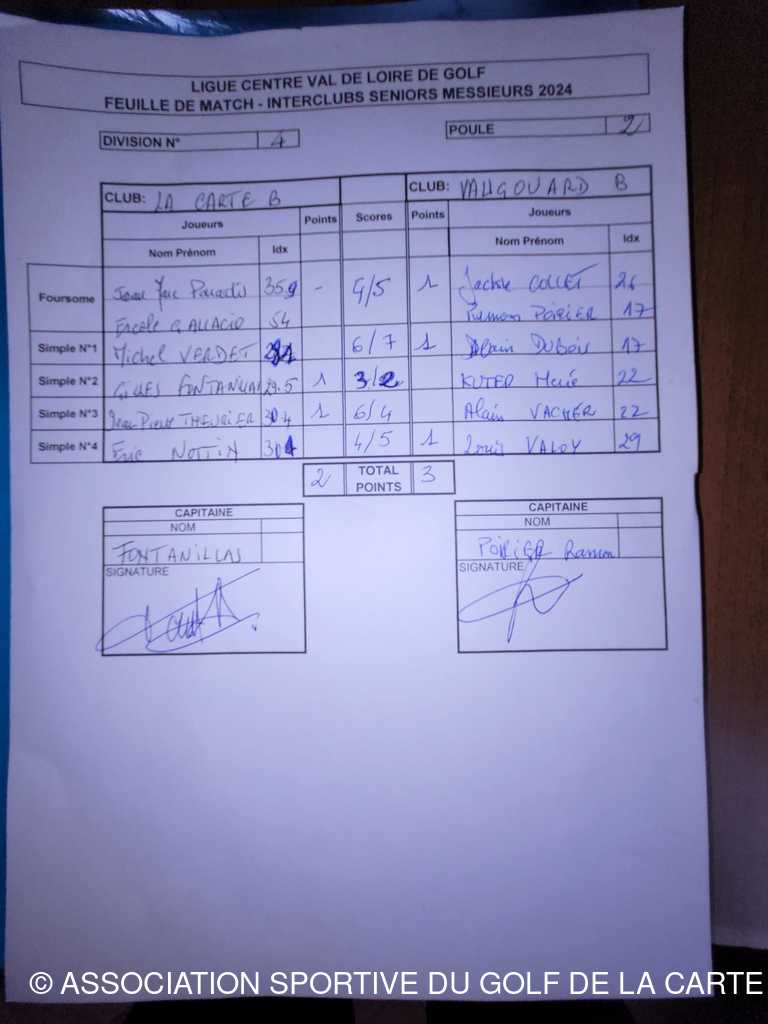 LIGUE CENTRE VAL DE LOIRE DE GOLF
FEUILLE DE MATCH - INTERCLUBS SENIORS MESSIEURS 2024
DIVISION N° 4 POULE 2
CLUB: LA CARTE B CLUB: VAUGOUARD B
Joueurs Points Scores Points Joueurs
Nom Prénom Idx Nom Prénom Idx
Foursome 35.9 - 4/5 1 Jackie COLLET 26
Ercole GALLACIO 54 Ramon POIRIER 17
Simple N°1 Michel VERDET 6/7 1 Alain DUBOIS 17
Simple N°2 GILLES FONTANILLAS 29.5 1 3/2 KUTER 22
Simple N°3 Jean-Pierre THEURIER 30.4 1 6/4 Alain VACHER 22
Simple N°4 Eric NOTTIN 4/5 1 Louis VALOY 29
2 TOTAL POINTS 3
CAPITAINE CAPITAINE
NOM NOM
FONTANILLAS POIRIER Ramon
SIGNATURE SIGNATURE
© ASSOCIATION SPORTIVE DU GOLF DE LA CARTE